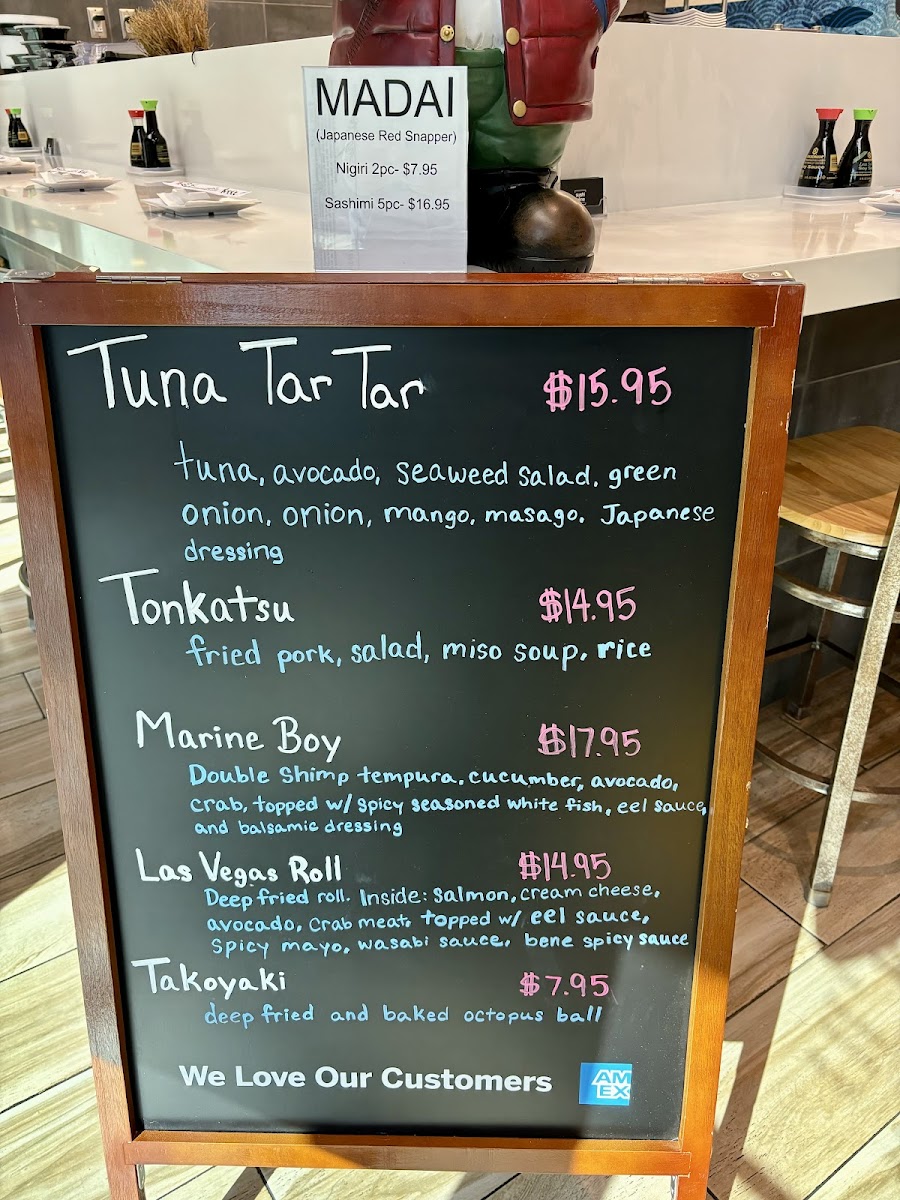 MADAI
(Japanese Red Snapper)
Nigiri 2pc- $7.95
Sashimi 5pc- $16.95
Tuna Tar Tar $15.95
tuna, avocado, seaweed salad, green
onion, onion, mango, masago. Japanese
dressing
Tonkatsu $14.95
fried pork, salad, miso soup, rice
Marine Boy $17.95
Double Shimp tempura, cucumber, avocado,
crab, topped w/ spicy seasoned white fish, eel sauce,
and balsamic dressing
Las Vegas Roll $14.95
Deep fried roll. Inside: Salmon, cream cheese,
avocado, crab meat, topped w/ eel sauce,
spicy mayo, wasabi sauce, bene spicy sauce
Takoyaki $7.95
deep fried and baked octopus ball
We Love Our Customers
AM
EX